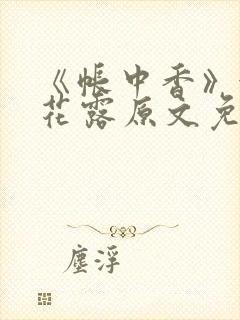 《帐中香》
花露原文免
尘浮